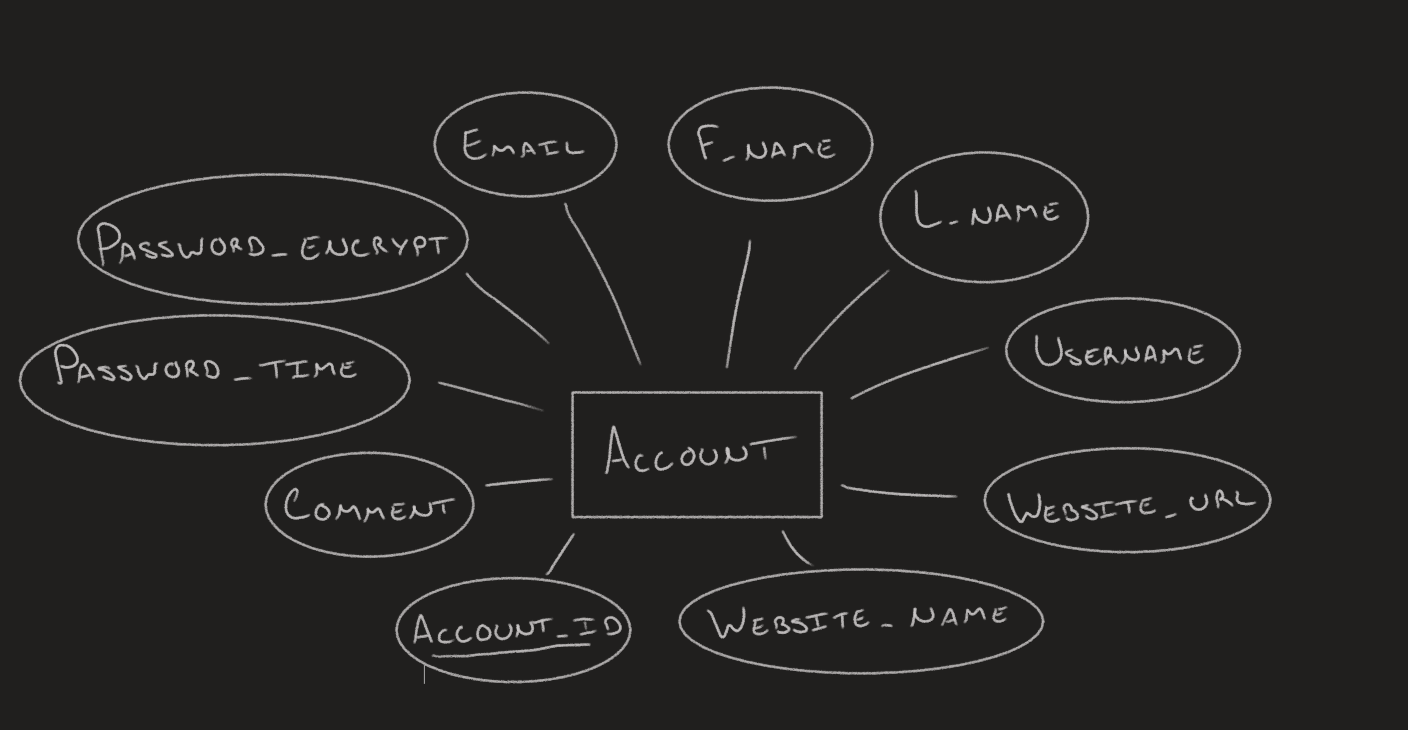 EMAIL
F_NAME
L_NAME
PASSWORD_ENCRYPT
USERNAME
PASSWORD_TIME
ACCOUNT
COMMENT
WEBSITE_URL
ACCOUNT_ID
WEBSITE_NAME